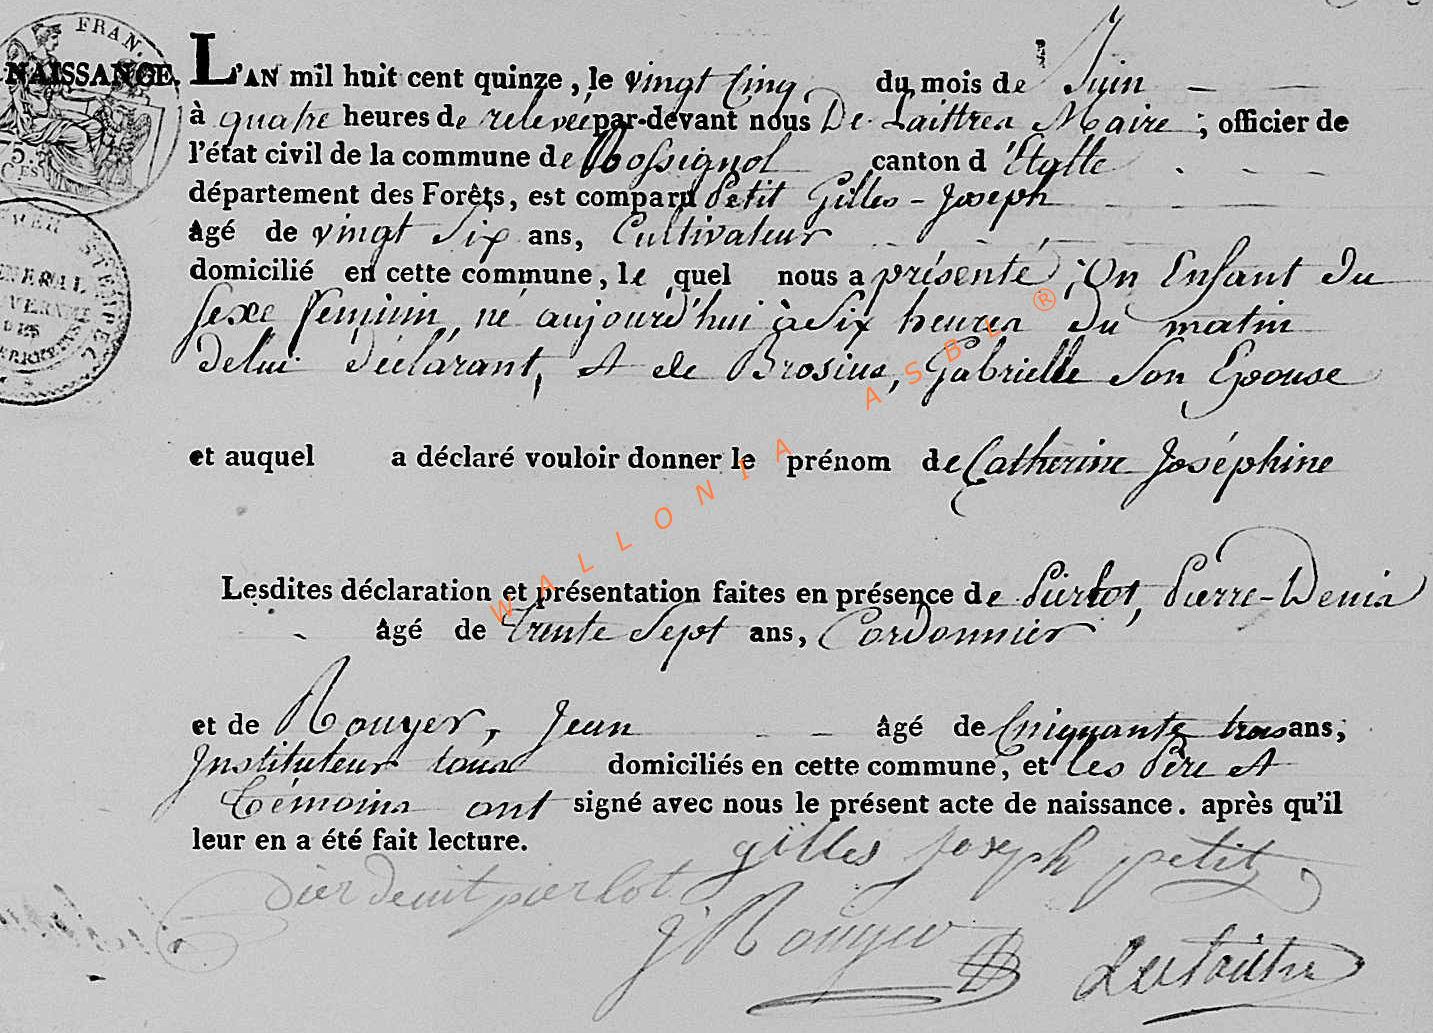 FRAN.
NAISSANCE.
75.
CES
STEMPEL
L'AN mil huit cent quinze, le vingt Cinq du mois de Juin
à quatre heures de relevée par-devant nous De Laittres Maire ; officier de
l'état civil de la commune de Rossignol canton d'Etalle
département des Forêts, est comparu Petit Gilles-Joseph
âgé de vingt Six ans, Cultivateur
domicilié en cette commune, le quel nous a présenté, Un Enfant du
sexe feminin, né aujourd'hui à Six heures du matin
de lui déclarant, et de Brosius, Gabrielle Son Epouse
et auquel a déclaré vouloir donner le prénom de Catherine Joséphine
Lesdites déclaration et présentation faites en présence de Pierlot, Pierre-Denis
âgé de trente Sept ans, Cordonnier
et de Rouyer, Jean âgé de Cinquante trois ans,
Instituteur tous domiciliés en cette commune, et les Père et
témoins ont signé avec nous le présent acte de naissance. après qu'il
leur en a été fait lecture.
gilles joseph petit
pier denit pierlot
J Rouyer
Delaittre
WALLONIA ASBL ®